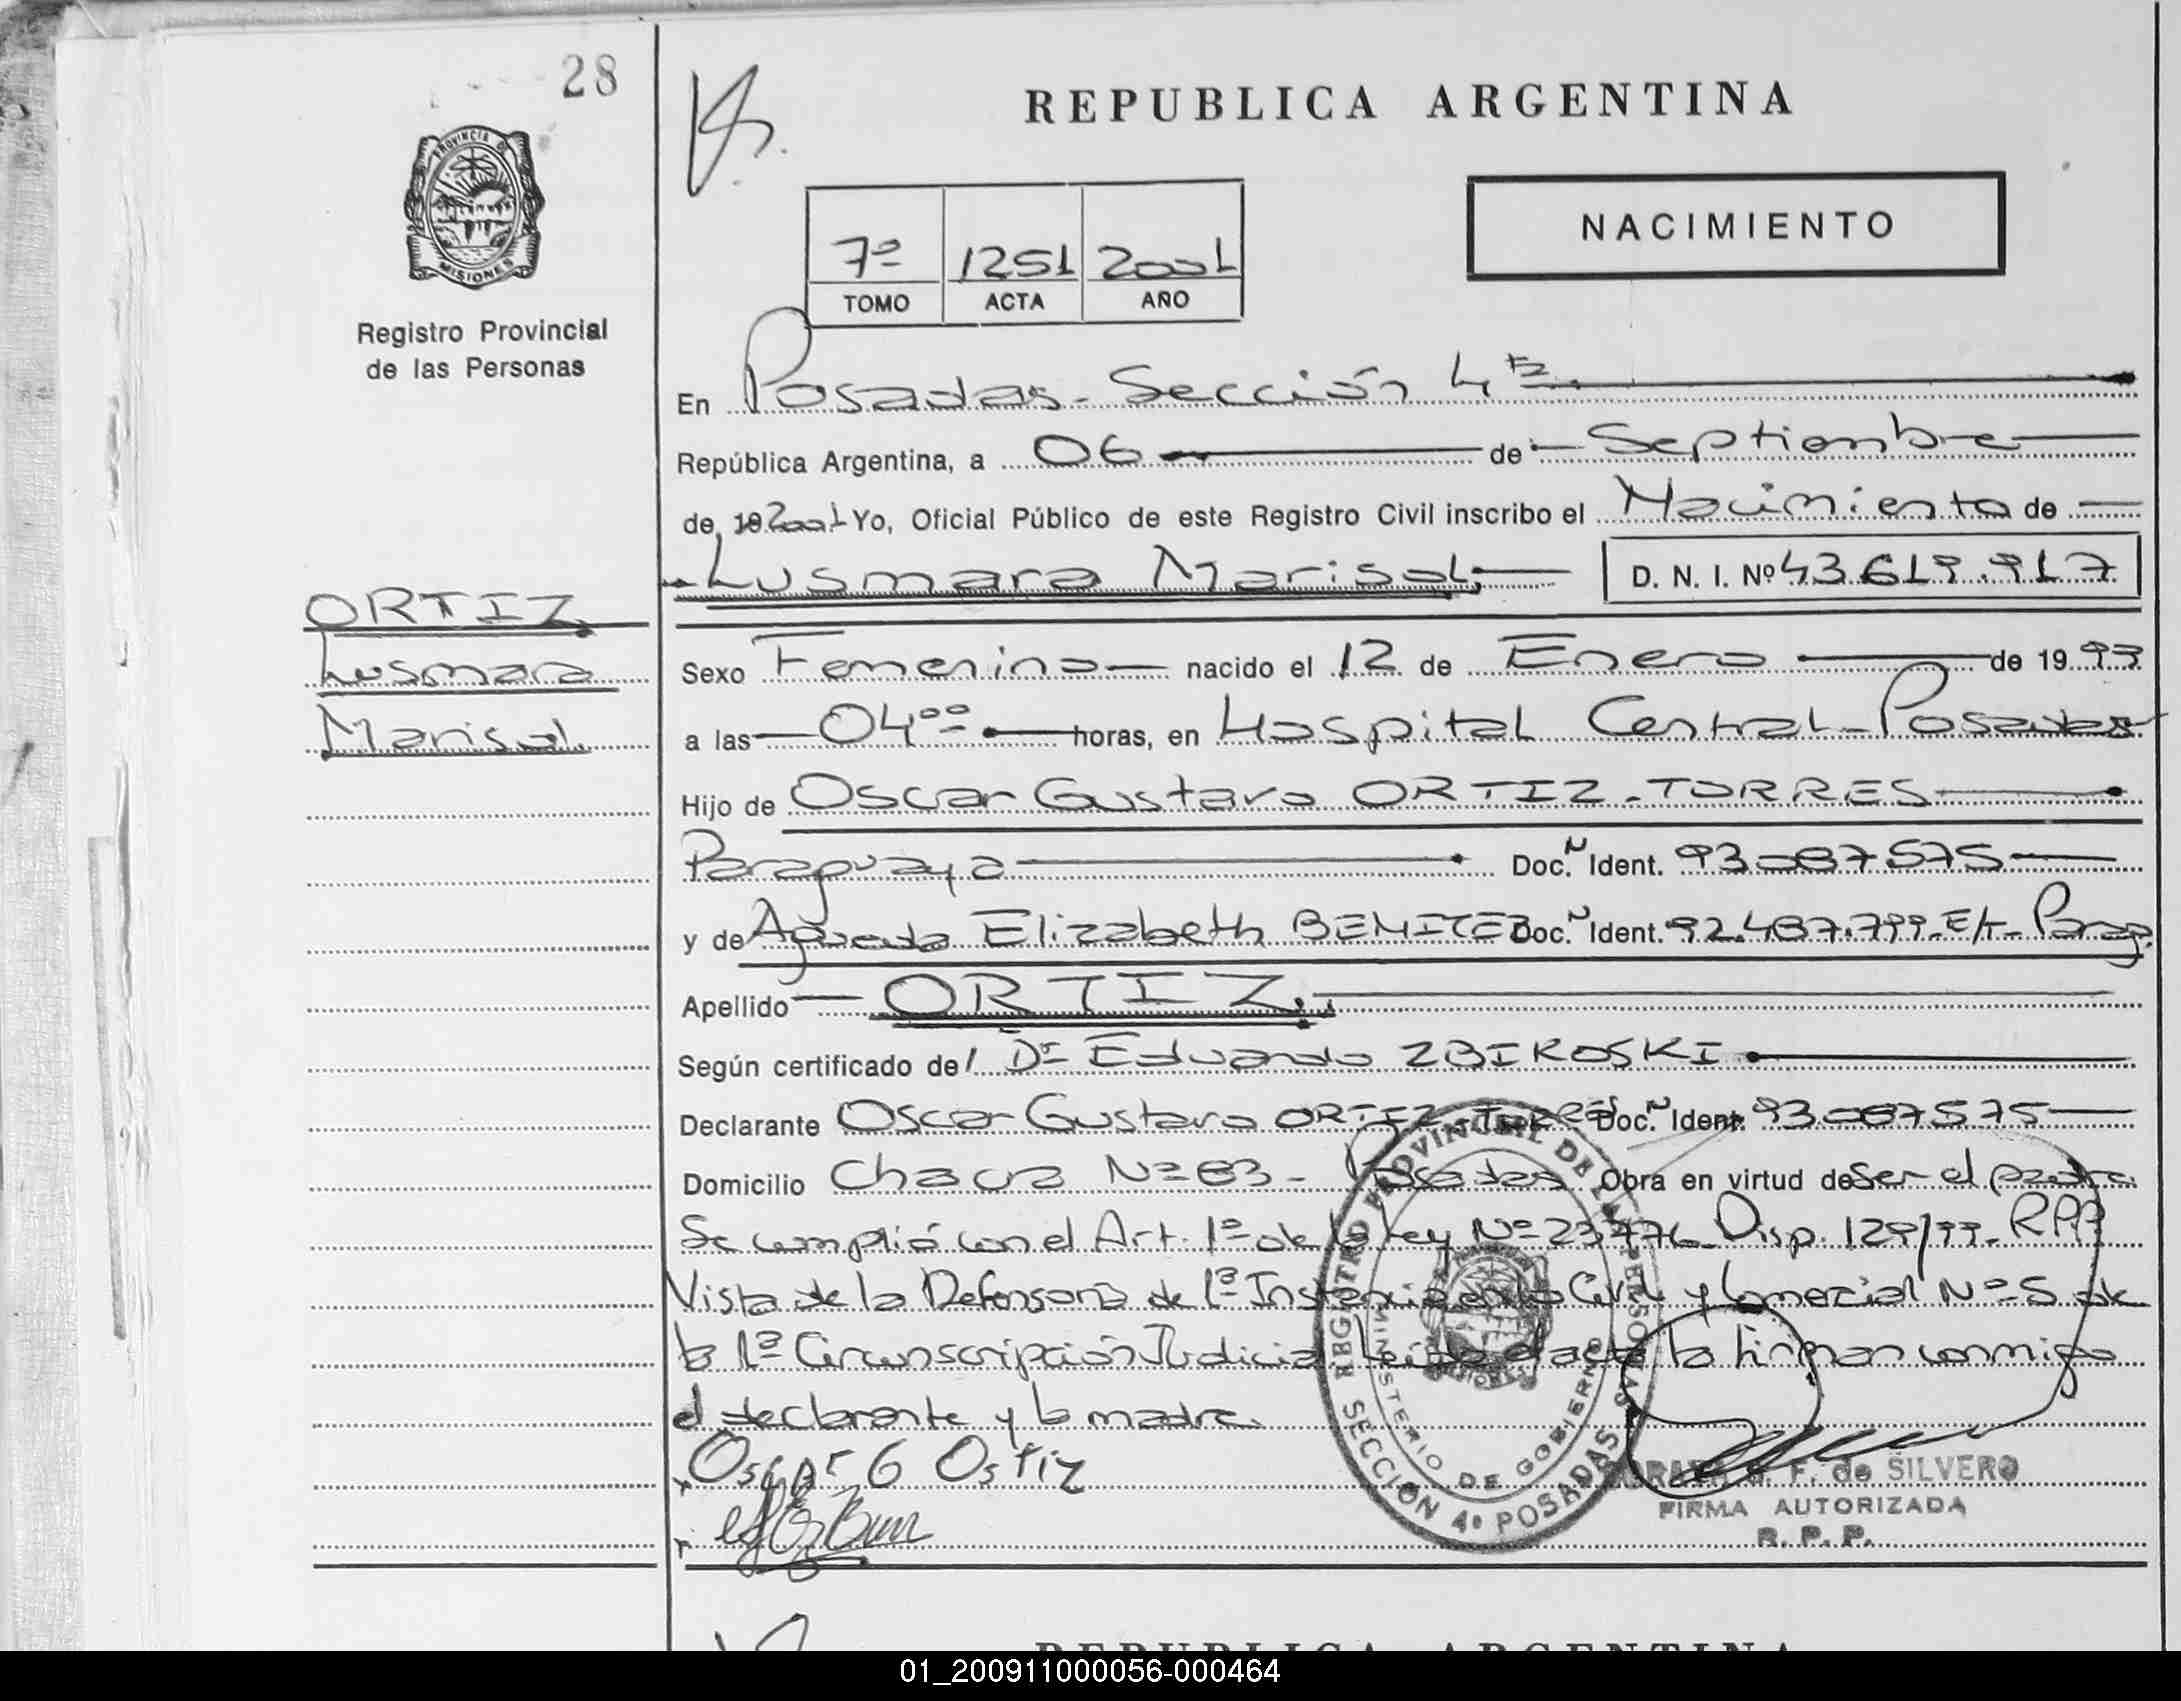 28
REPUBLICA ARGENTINA
PROVINCIA DE
MISIONES
Registro Provincial
de las Personas
NACIMIENTO
7º 1251 2001
TOMO ACTA AÑO
En Posadas - Sección 4ta
República Argentina, a 06 de Septiembre
de 19 2001 Yo, Oficial Público de este Registro Civil inscribo el Nacimiento de
Lusmara Marisol D. N. I. Nº 43.619.917
ORTIZ
Lusmara
Marisol
Sexo Femenino nacido el 12 de Enero de 1993
a las 04oo horas, en Hospital Central - Posadas
Hijo de Oscar Gustavo ORTIZ - TORRES
Paraguaya Doc.N Ident. 93087575
y de Agueda Elizabeth BENITEZ Doc.N Ident. 92.487.799 - Ext - Parag.
Apellido ORTIZ
Según certificado del Dr Eduardo ZBIKOSKI
Declarante Oscar Gustavo ORTIZ - TORRES Doc.N Ident. 93087575
Domicilio Chacra Nº 83 - Posadas Obra en virtud de Ser el padre
Se cumplió con el Art. 1º de la Ley Nº 23776 - Disp. 129/99 - RPP
Vista de la Defensoría de 1ª Instancia en lo Civil y Comercial Nº 5 de
la 1ª Circunscripción Judicial Leída el acta la firman conmigo
el declarante y la madre.
Oscar G Ortiz
REGISTRO PROVINCIAL DE LAS PERSONAS
MINISTERIO DE GOBIERNO
SECCIÓN 4º POSADAS
F. de SILVERO
FIRMA AUTORIZADA
R. P. P.
REPUBLICA ARGENTINA
01_200911000056-000464